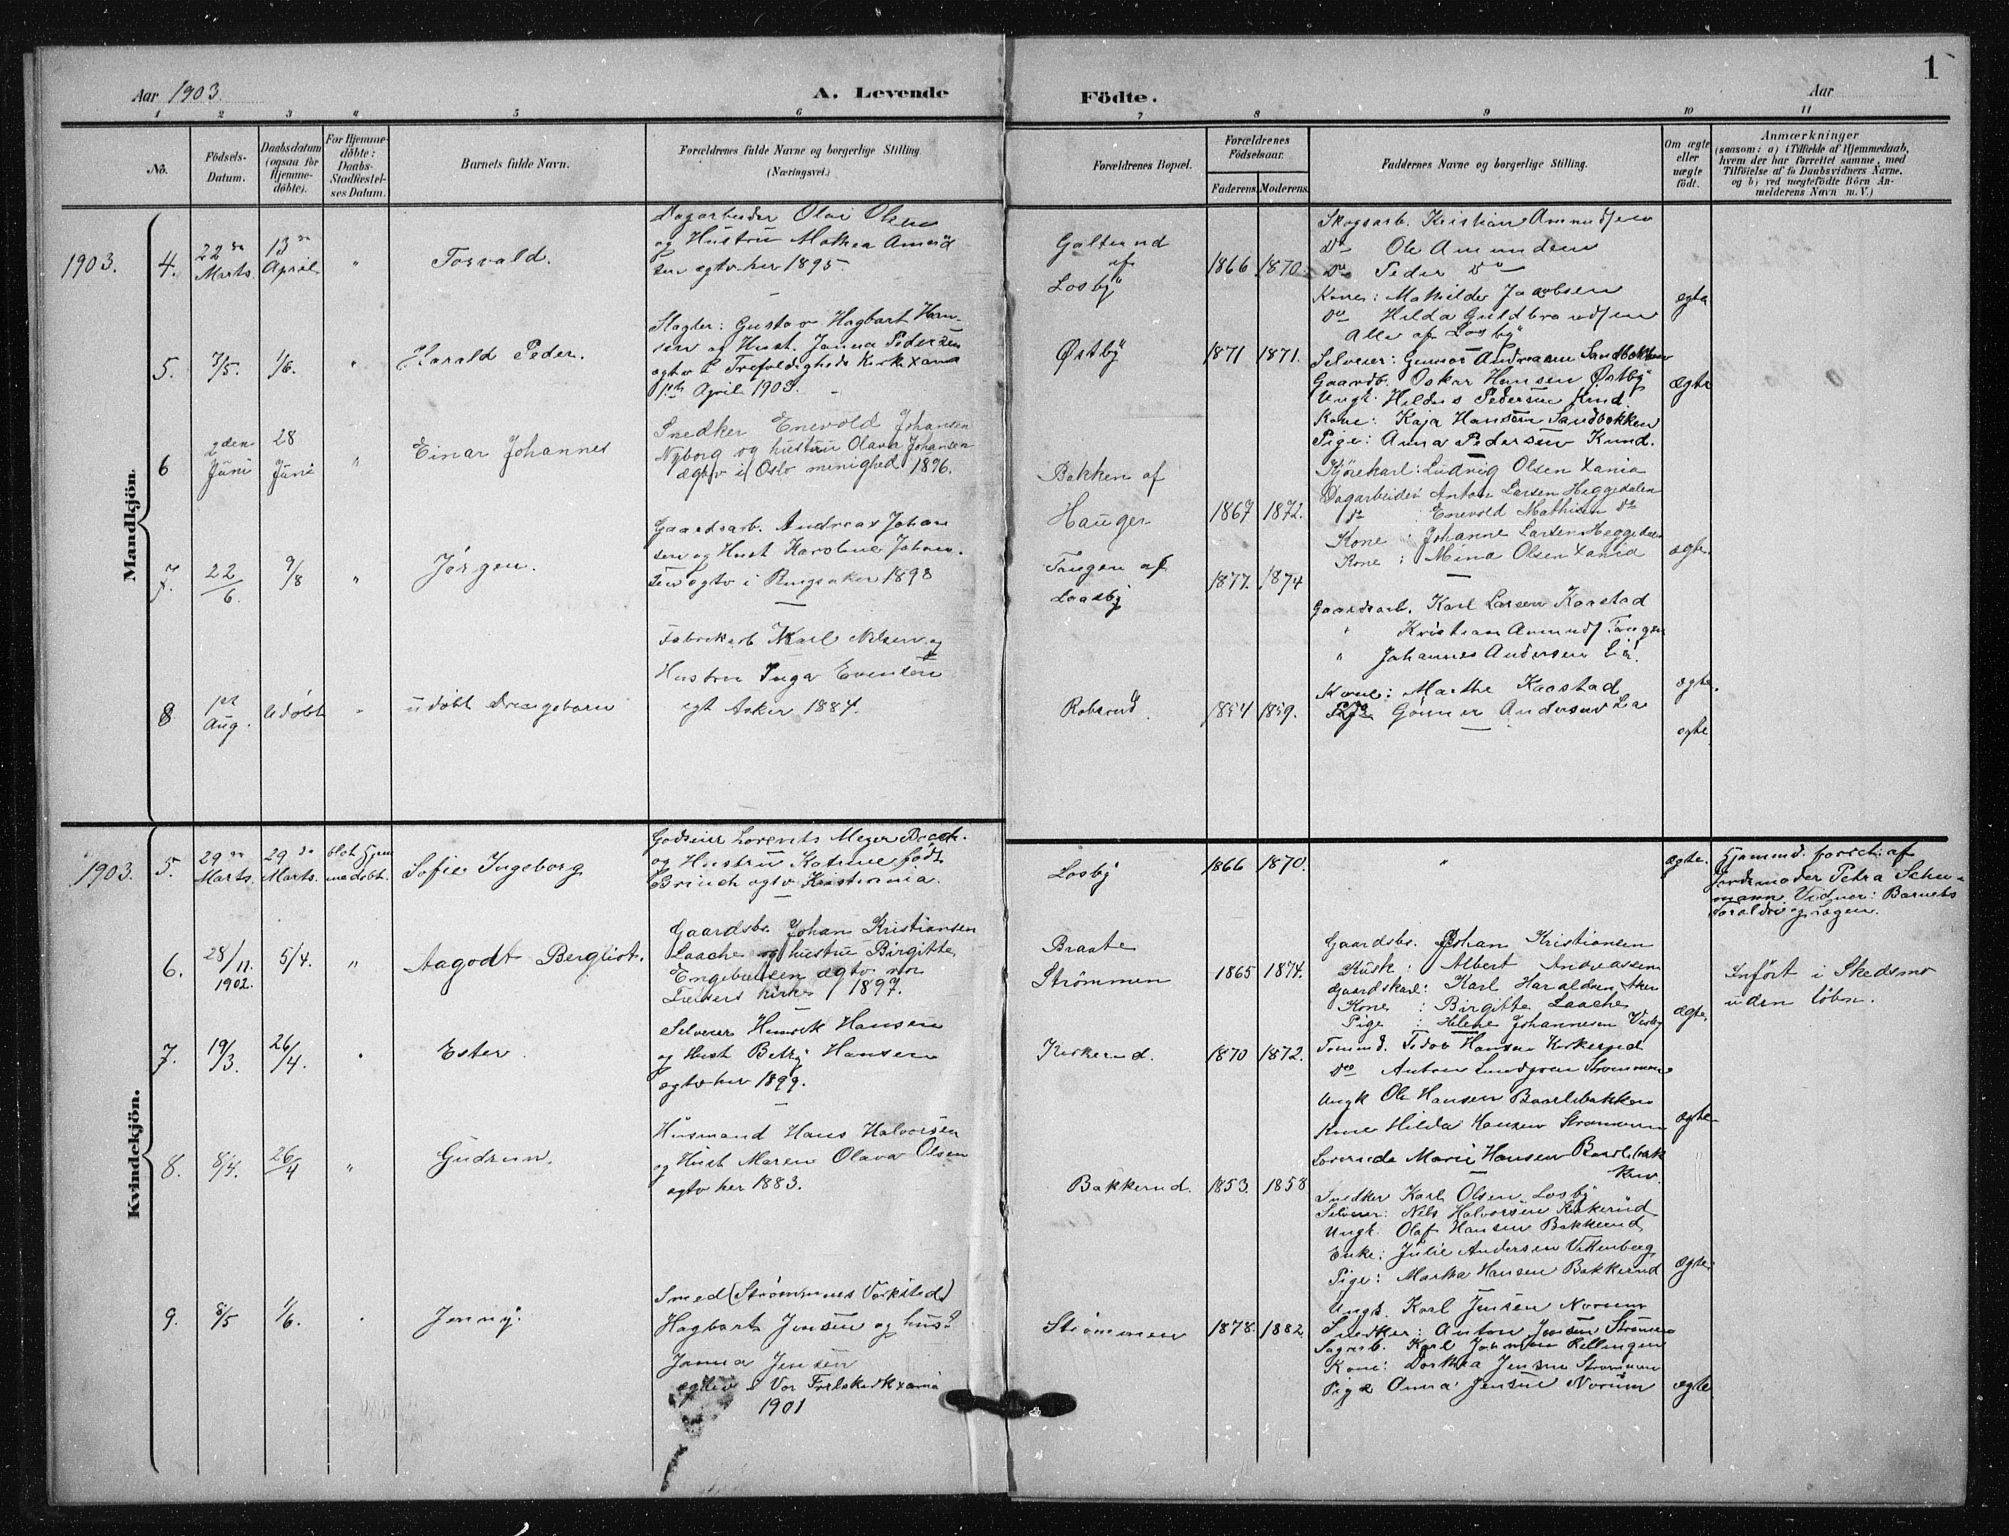 1
Aar 1903.
A. Levende
Födte.
Aar
1 2 3 " 5 6 7 8 9 10 11
No.
Födsels-Datum.
Daabsdatum (ogsaa for Hjemme-döbte).
For Hjemme-döbte: Daabs-Stadfæstel-ses Datum.
Barnets fulde Navn.
Forældrenes fulde Navne og borgerlige Stilling
(Næringsvei.)
Forældrenes Bopæl.
Forældrenes Födselsaar.
Faderens. Moderens.
Faddernes Navne og borgerlige Stilling.
Om ægte eller uægte födt.
Anmærkninger
(saasom: a) i Tilfælde af Hjemmedaab, hvem der har forrettet samme, med Tilföielse af to Daabsvidners Navne, og b) ved uægtefödte Börn An-melderens Navn m. V.)
Mandkjön.
1903. 4. 22 Marts 13 April " Torvald.
Dagarbeider Olai Olsen
og Hustru Mathea Amund
sen egtv her 1895.
Losby 1866 1870.
Skogsarb. Kristian Amundsen
Do Ole Amundsen
Do Peder Do
Kone: Mathilde Jacobsen
Do Hilda Guldbrandsen
Alle af Losby
egte
5. 7/5. 1/6. " Harald Peder.
Slagter: Gustav Hagbart Han-
sen og Hust. Janna Pedersen
egtv i Trefoldigheds Kirke Xania
April 1903.
Østby 1871 1871.
Selveier: Gunnar Andreasen Sandbakken
Gaardb. Oskar Hansen Østby
Ungk. Hildus Pedersen
Kone: Kaja Hansen Sandbakken
Pige: Anna Pedersen
Ægte
6 2den Juni 28 Juni " Einar Johannes
Snedker Enevold Johansen
Nyborg og hustru Olava Johansen
Ægtv i Oslo menighed 1896.
Bakken af
Hauger 1867 1872.
Kjørekarl: Ludvig Olsen Xania
Dagarbeider Anton Larsen Heggedalen
do : Enevold Mathisen do
Kone : Johanne Larsen Heggedalen
Kone : Mina Olsen Xania
ægte.
7. 22/6. 9/8 " Jørgen.
Gaardsarb. Andreas Johan
sen og Hust Karoline Johan-
sen egtv i Ringsaker 1898
Tangen af
Laasby 1877. 1874
Gaardsarb. Karl Larsen Kaastad
" Kristian Amunds Tangen
" Johannes Andersen Lia.
Kone: Marthe Kaastad
Pige Andersen Lia
ægte.
8 1st Aug. Udøbt " udøbt Drengebarn
Fabrikarb Karl Nilsen og
Hustru Inga Evensen
egt Asker 1884.
Robsrud. 1854 1859.
egte.
Kvindekjön.
1903. 5. 29 Marts. 29 Marts. Sofie Ingeborg
Godseier Lorents Meyer
og Hustru Katrine født
Brinch egtv Kristiania.
Losby 1866 1870. "
ægte.
Hjemmed. forret. af
Jordemoder Petra Schu-
mann. Vidner: Barnets
6. 28/11. 1902. 5/4. " Aagodt Bergliot.
Gaardsbr. Johan Kristiansen
Laache og hustru Birgitte
Engebretsen ægtv
kirke 1897.
Braate
Strømmen 1865 1874.
Gaardsbr. Johan Kristiansen
Kusk : Albert Andreassen
Gaardskarl: Karl Haraldsen Aker
Kone : Birgitte Laache
Pige : Helene Johannesen
ægte.
Indført i Skedsmo
uden løbn.
7. 19/3. 26/4. " Ester.
Selveier Henrik Hansen
og Hust Betzy Hansen
egtv her 1899.
Kirkerud. 1870 1872.
Tommd. Hansen Kirkerud
Do Anton Lundgren Strømmen
Ungk Ole Hansen
Kone Hilda Hansen Strømmen
Marie Hansen
egte
8. 8/4. 26/4 " Gudrun.
Husmand Hans Halvorsen
og Hust Maren Olava Olsen
egtv her 1883.
Bakkerud. 1853. 1858
Snedker Karl Olsen Losby
Selveier: Nils Halvorsen Kirkerud
Ungk. Olaf Hansen Bakkerud
Enke: Julie Andersen Vittenberg
Pige: Martha Hansen Bakkerud
ægte.
9. 8/5 1/6. " Jenny.
Smed (Strømmens Værksted)
Hagbart Jensen og hus?
Janna Jensen
egtev i Vor Frelsers Xania
1901
Strømmen 1878. 1882
Ungk. Karl Jensen Norum
Snedker: Anton Jensen Strømmen
Sagarb. Karl Johansen Rellingen
Kone: Dorthea Jensen Strømmen
Pige Anna Jensen Norum
ægte